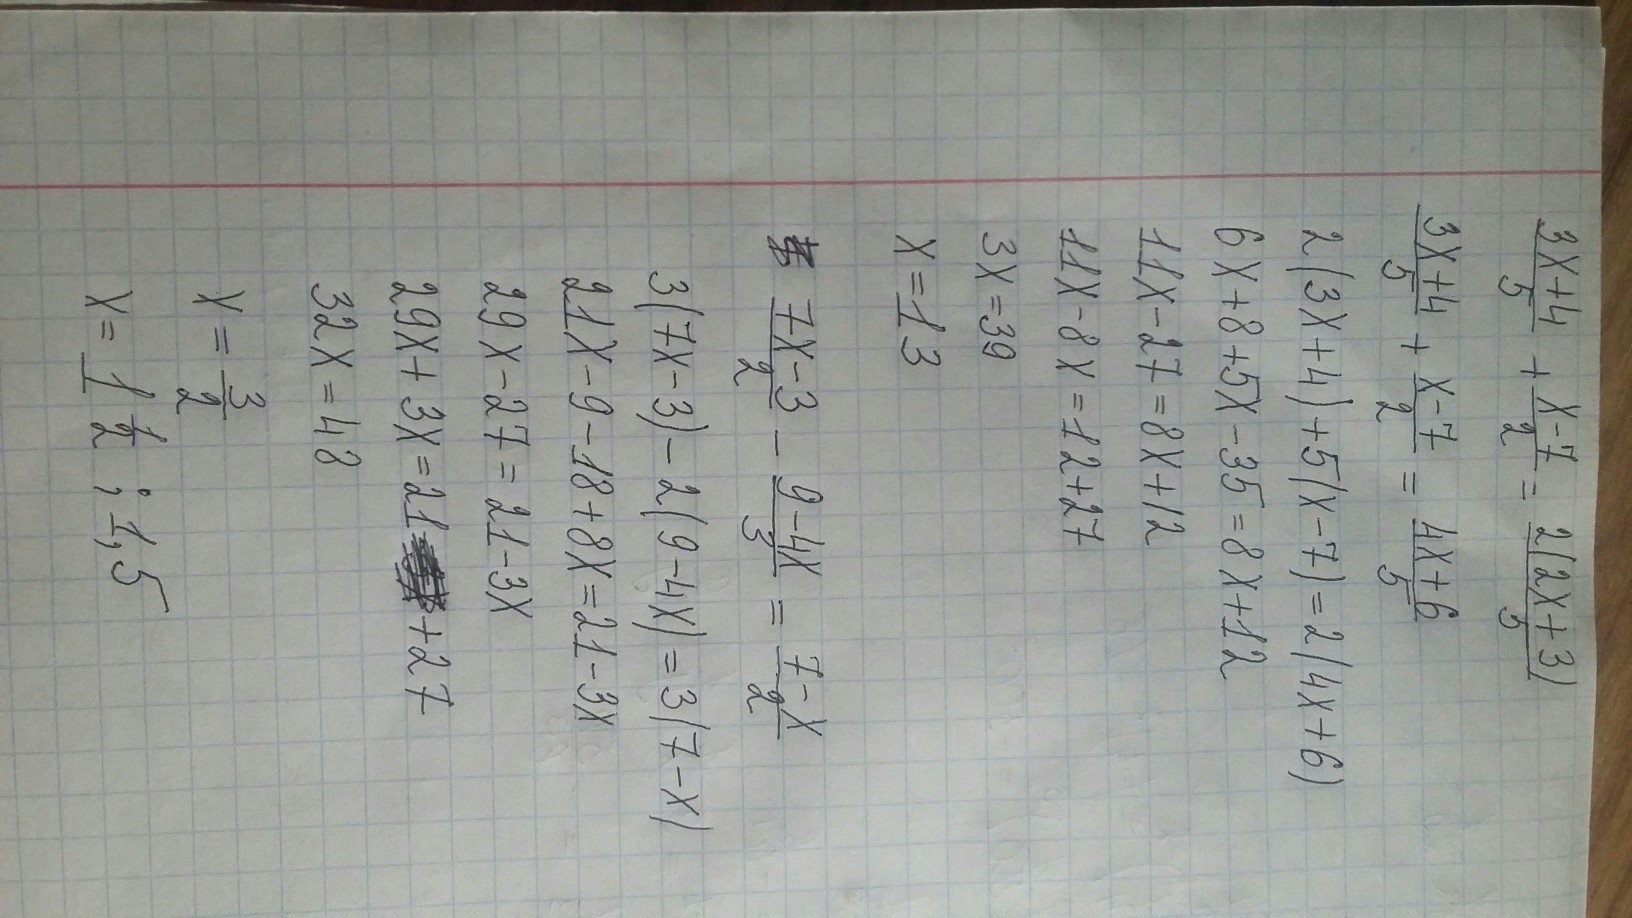 (3x+4)/5 + (x-7)/2 = 2(2x+3)/5
(3x+4)/5 + (x-7)/2 = (4x+6)/5
2(3x+4)+5(x-7)=2(4x+6)
6x+8+5x-35=8x+12
11x-27=8x+12
11x-8x=12+27
3x=39
x=13
(7x-3)/2 - (9-4x)/3 = (7-x)/2
3(7x-3)-2(9-4x)=3(7-x)
21x-9-18+8x=21-3x
29x-27=21-3x
29x+3x=21+27
32x=48
x=3/2
x=1 1/2 ; 1,5